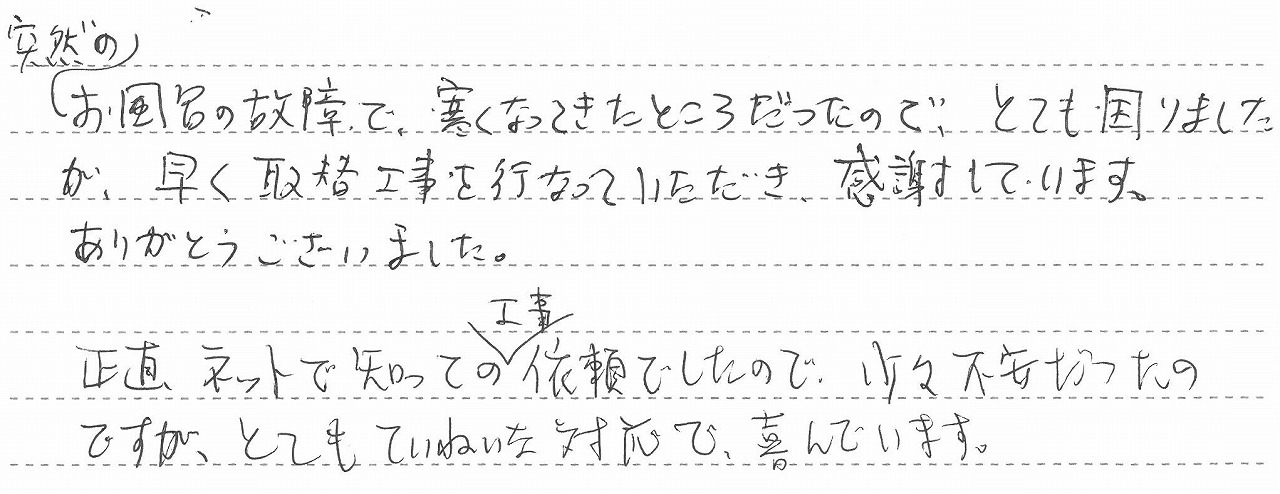 突然の
お風呂の故障で、寒くなってきたところだったので、とても困りました
が、早く取替工事を行なっていただき、感謝しています。
ありがとうございました。
工事
正直、ネットで知っての依頼でしたので、少々不安だったの
ですが、とてもていねいな対応で、喜んでいます。